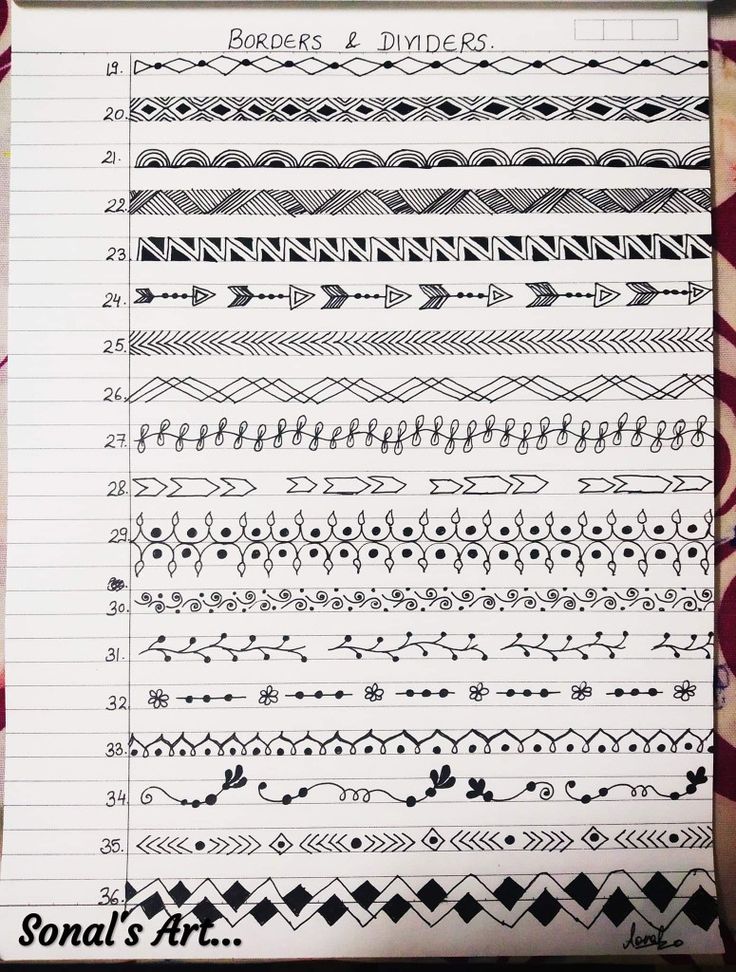 BORDERS & DIVIDERS.
19.
20.
21.
22.
23.
24.
25.
26.
27.
28.
29.
30.
31.
32.
33.
34.
35.
36.
Sonal's Art...